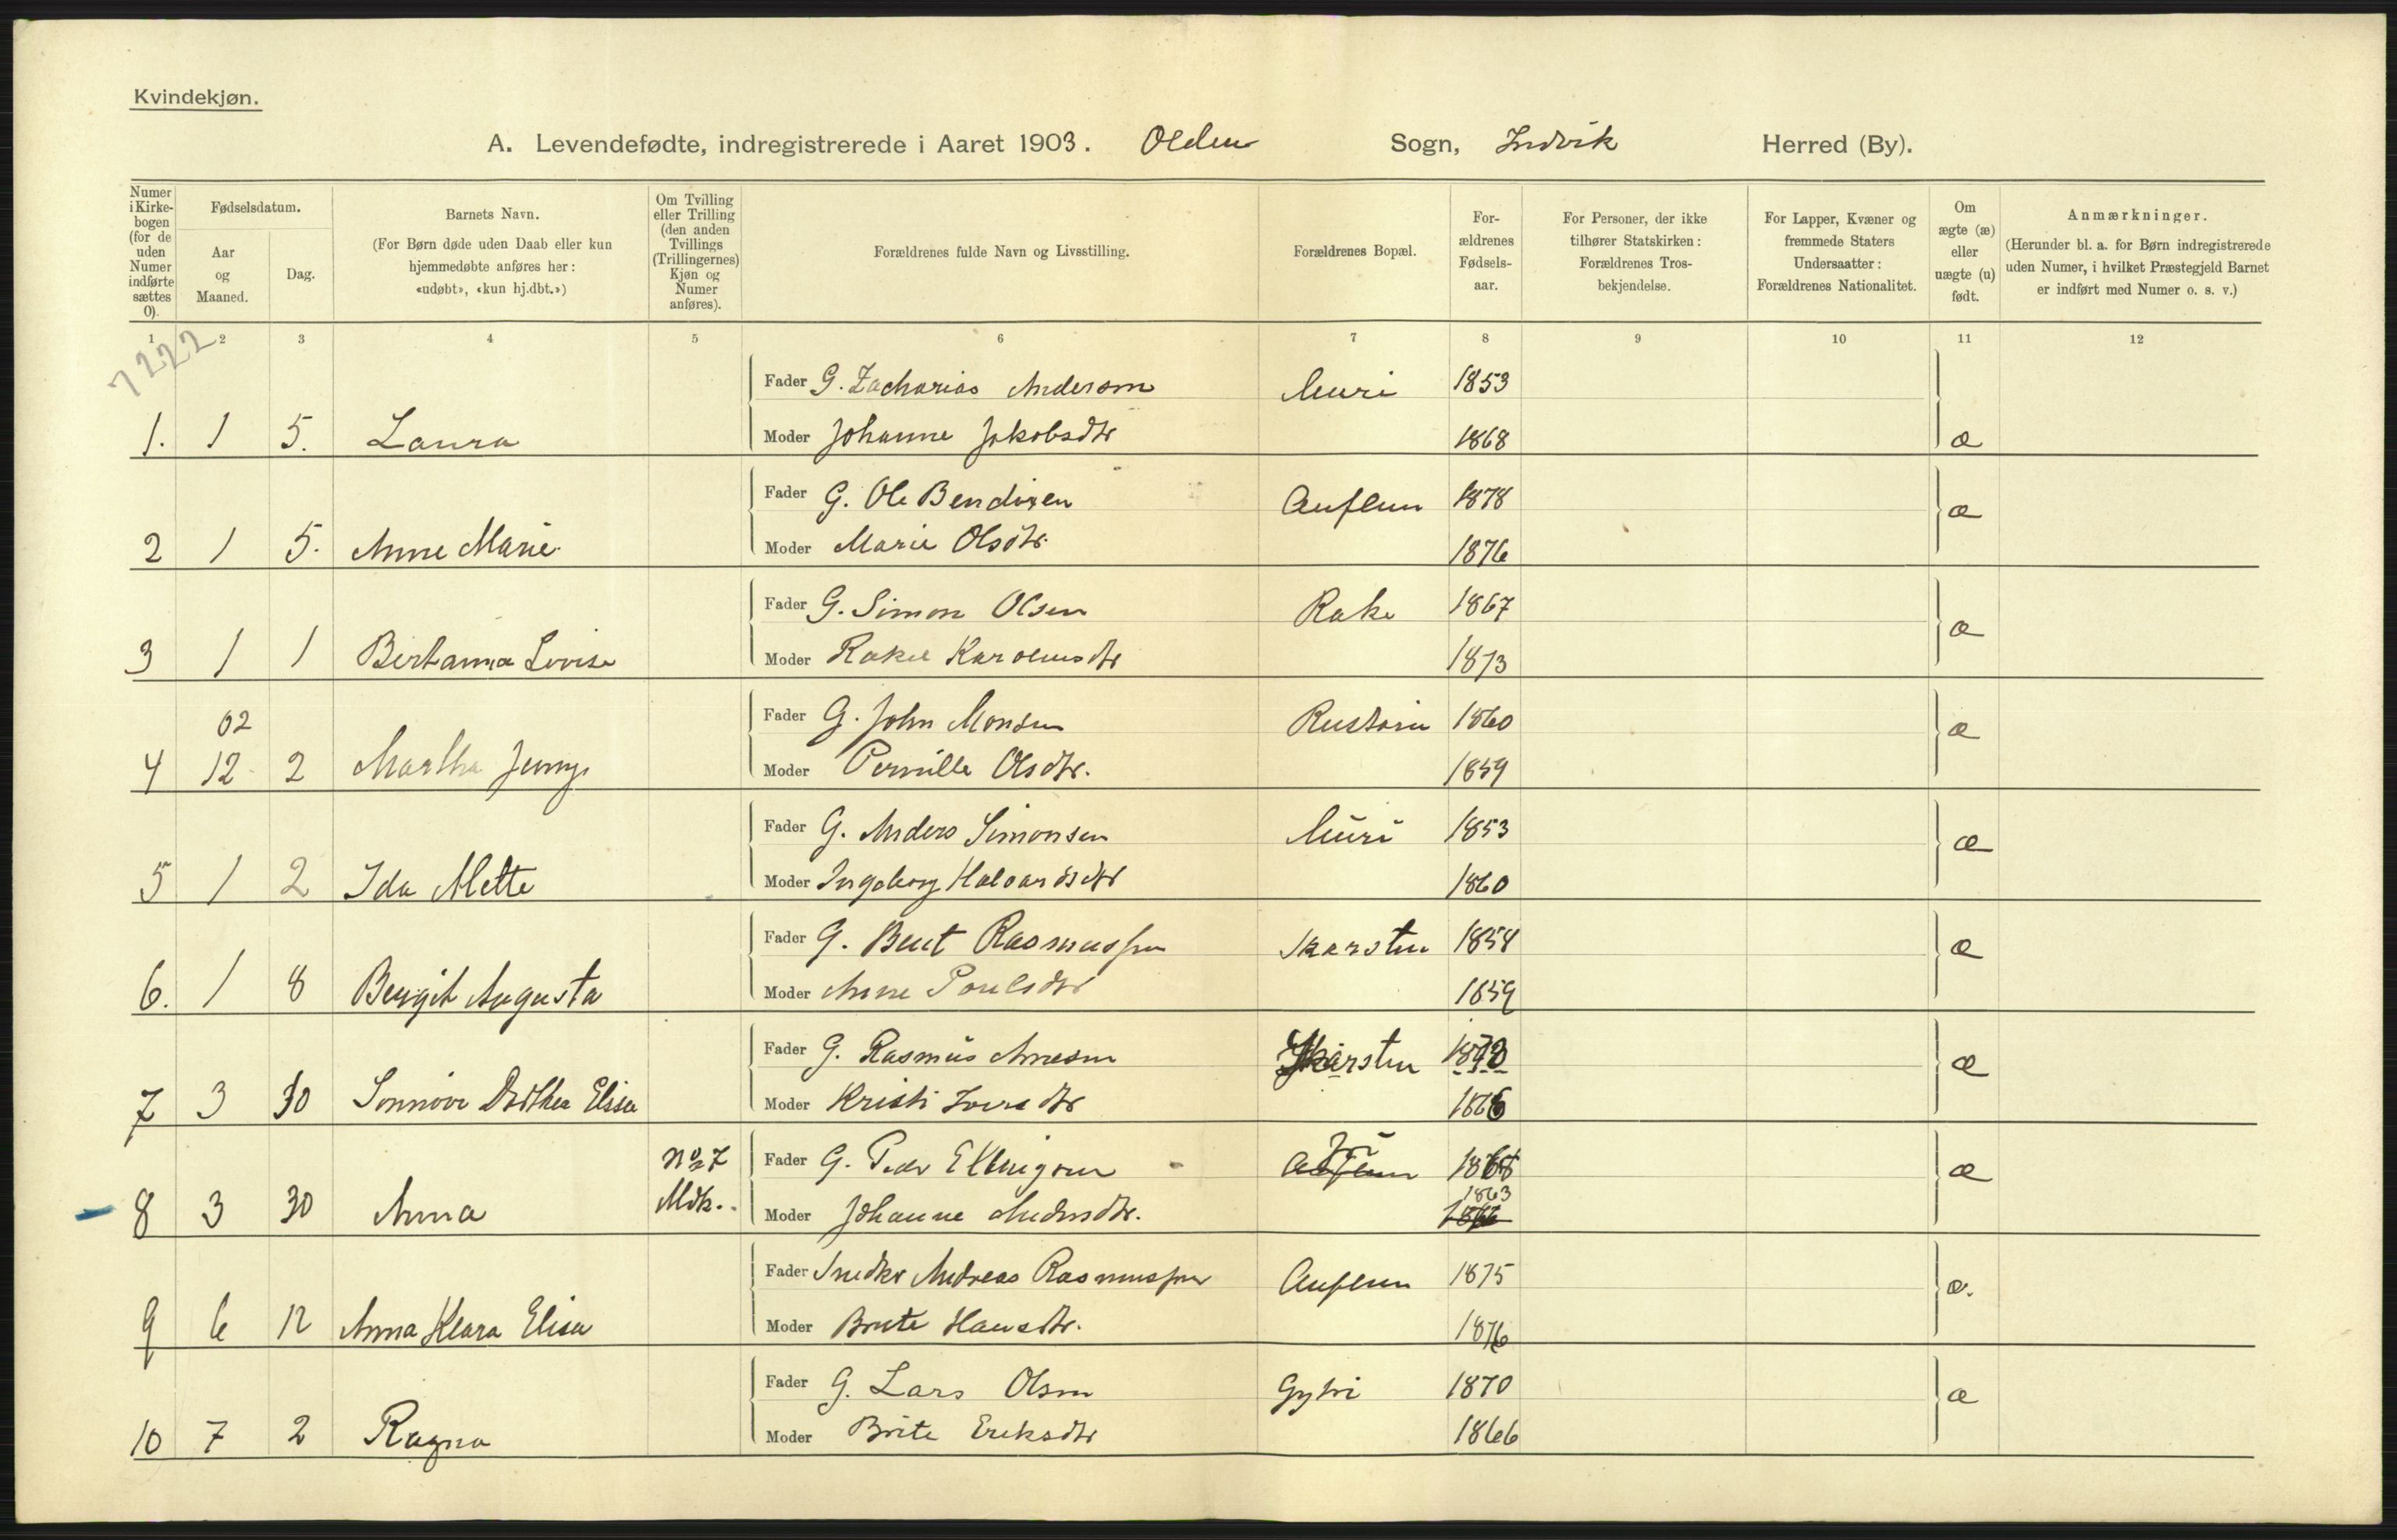 Kvindekjøn.
A. Levendefødte, indregistrerede i Aaret 1903. Olden Sogn, Indvik Herred (By).
Numer i Kirkebogen (for de uden Numer indførte sættes 0).
Fødselsdatum.
Aar og Maaned.
Dag.
Barnets Navn.
(For Børn døde uden Daab eller kun hjemmedøbte anføres her: «udøbt», «kun hj.dbt.»)
Om Tvilling eller Trilling (den anden Tvillings (Trillingernes) Kjøn og Numer anføres).
Forældrenes fulde Navn og Livsstilling.
Forældrenes Bopæl.
Forældrenes Fødselsaar.
For Personer, der ikke tilhører Statskirken: Forældrenes Trosbekjendelse.
For Lapper, Kvæner og fremmede Staters Undersaatter: Forældrenes Nationalitet.
Om ægte (æ) eller uægte (u) født.
Anmærkninger.
(Herunder bl. a. for Børn indregistrerede uden Numer, i hvilket Præstegjeld Barnet er indført med Numer o. s. v.)
1 2 3 4 5 6 7 8 9 10 11 12
7222
Fader G. Zacharias Anderson Muri 1853
1. 1 5. Laura Moder Johanne Jakobsdtr 1868 æ
Fader G. Ole Bendixen Auflem 1878 æ
2 1 5. Anne Marie Moder Marie Olsdtr. 1876
Fader G. Simon Olsen Rake 1867 æ
3 1 1 Bertanna Lovise Moder Rakel Karolusdtr 1873
02 Fader G. John Monsen Rustøen 1860 æ
4 12 2 Martha Jenny Moder Pernille Olsdtr. 1859
Fader G. Anders Simonsen Muri 1853 æ
5 1 2 Ida Mette Moder Ingeborg Halvardsdtr 1860
Fader G. Bent Rasmussen Skarsten 1858 æ
6. 1 8 Bergit Augusta Moder Anne Poulsdtr 1859
Fader G. Rasmus Arnesen Skarsten æ
7 3 30 Sønnøve Dorthea Elisa Moder Kristi Iversdtr 1866
No 7 Fader G. Peder Ellingsen æ
8 3 30 Anna Mdk. Moder Johanne Andersdtr. 1863
Fader Snedker Andreas Rasmussen Auflem 1875 æ.
9 6 12 Anna Klara Elisa Moder Brite Hansdtr. 1876
Fader G. Lars Olsen Gytri 1870 æ
10 7 2 Ragna Moder Brite Eriksdtr 1866